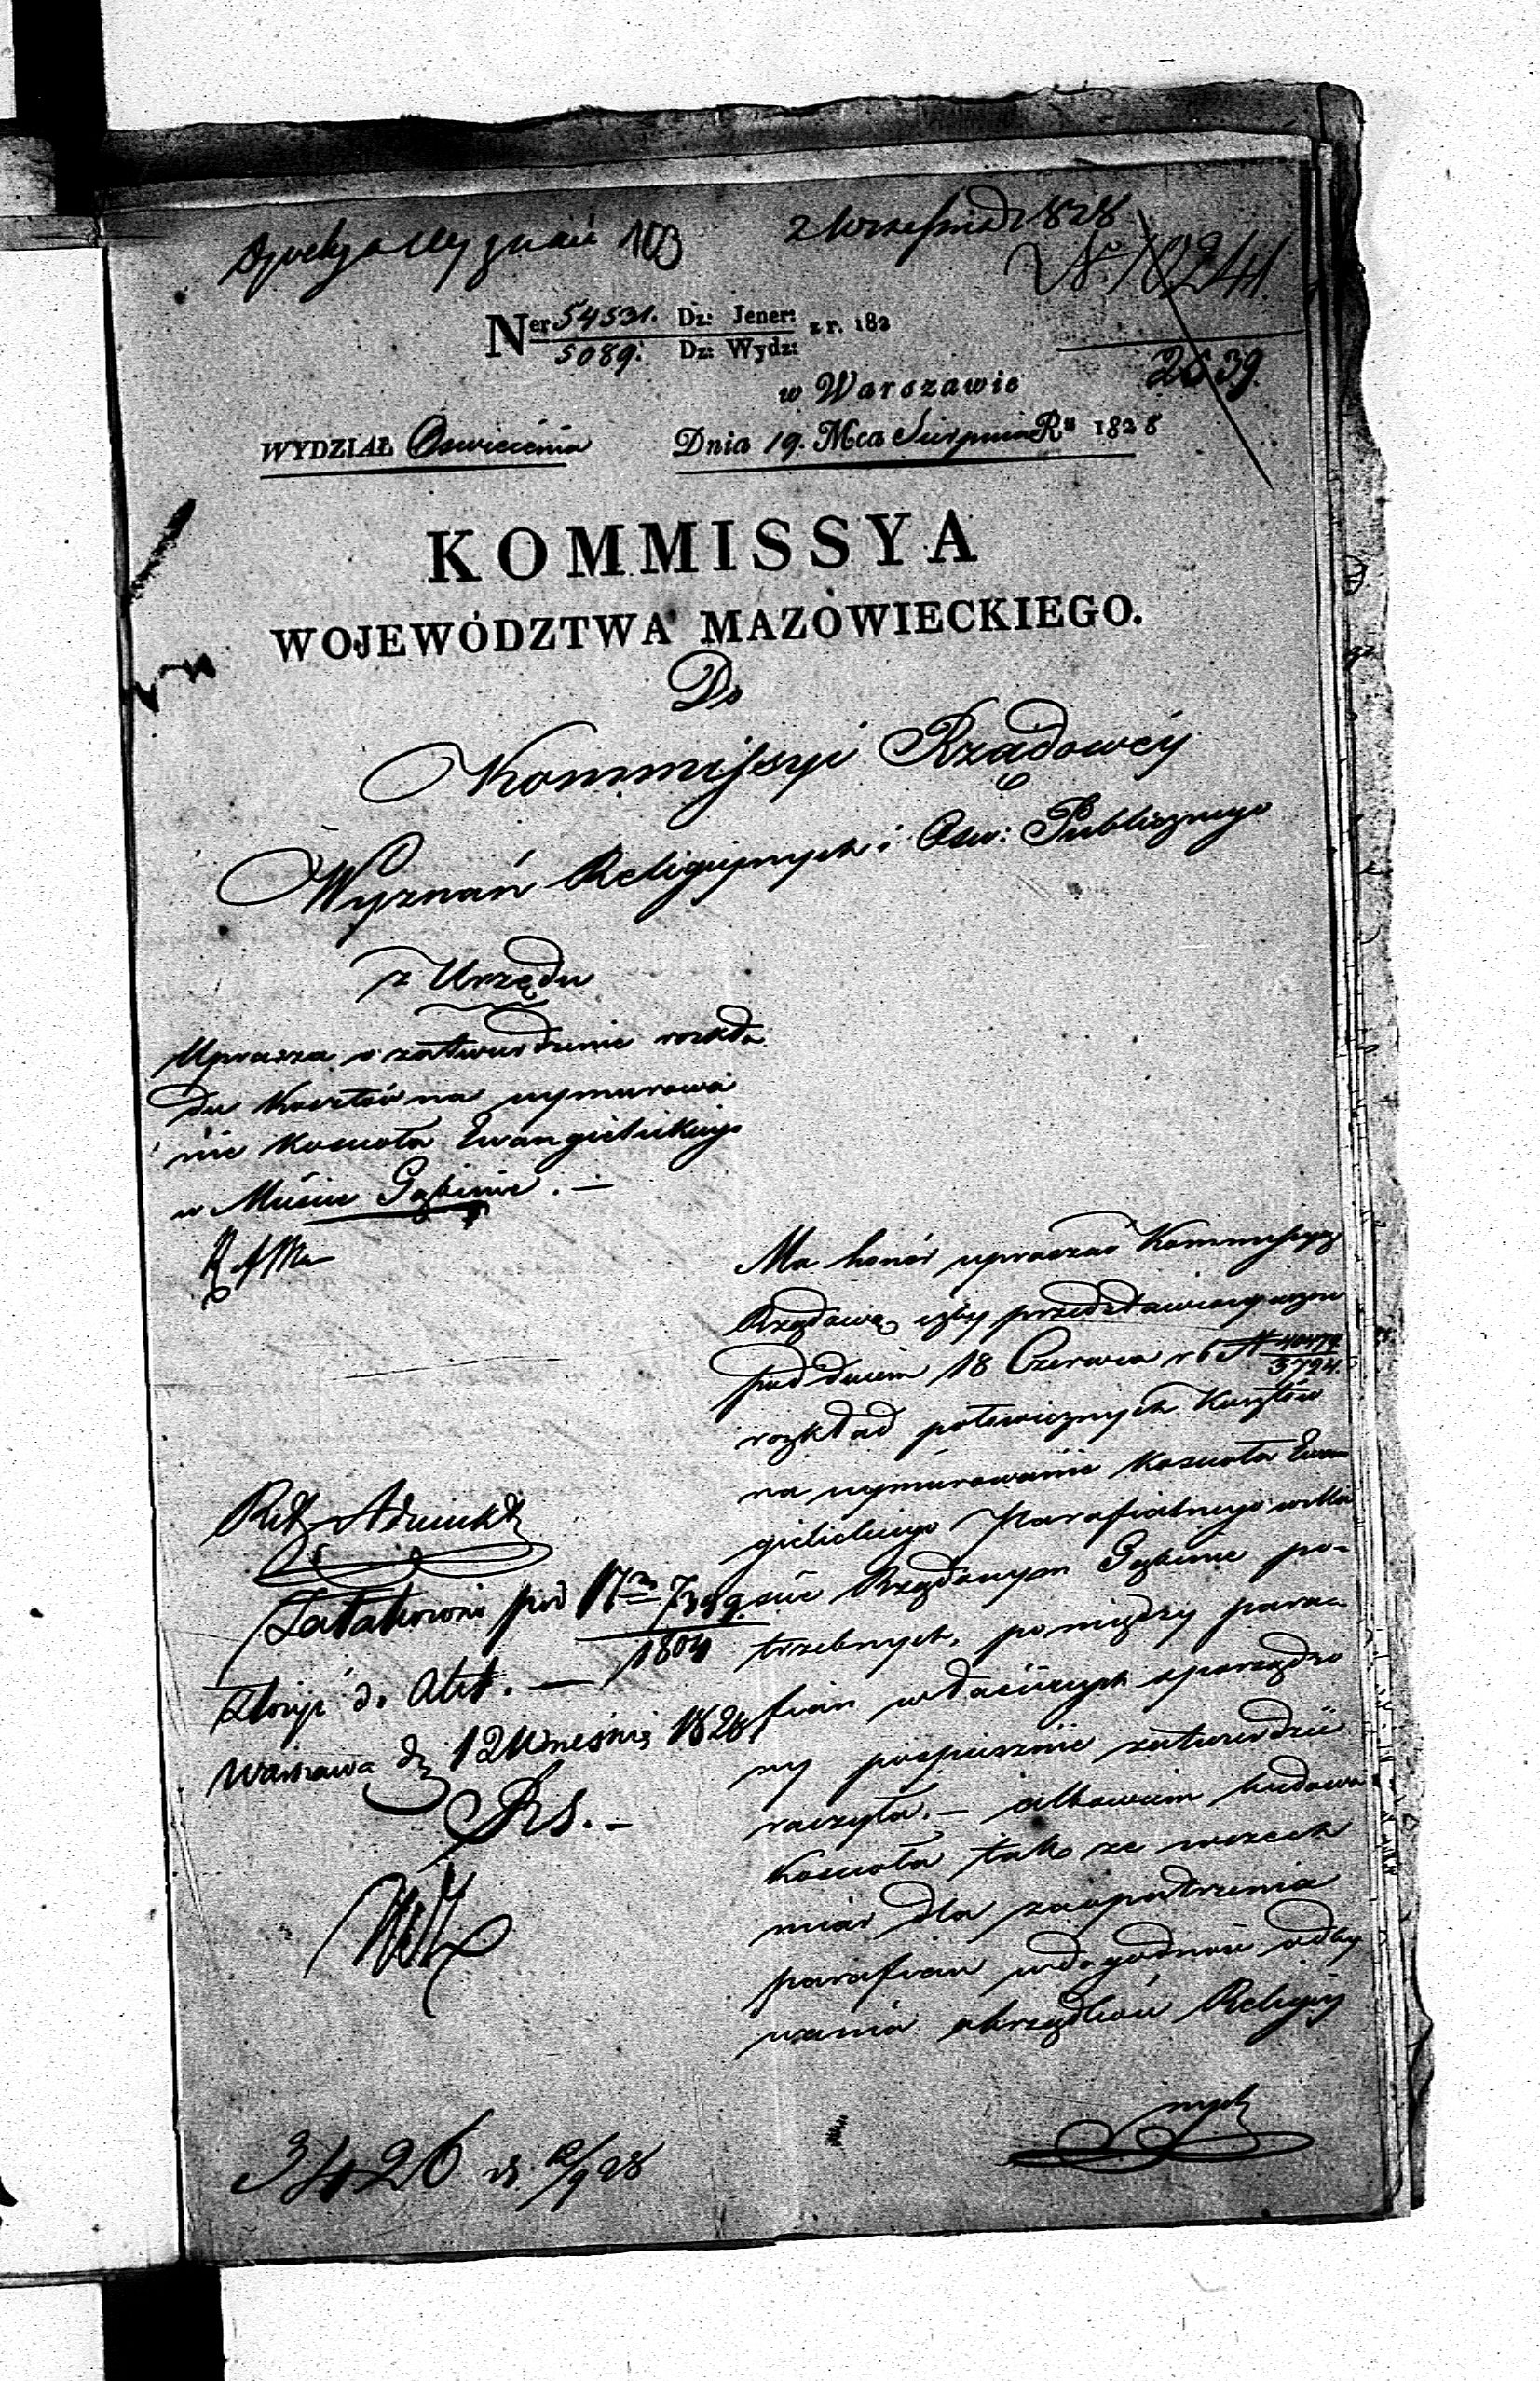 103 2 Września 1828
N. 10241
2639.
Ner 54531. Dz: Jener: z r. 182
5089. Dz: Wydz:
w Warszawie
WYDZIAŁ Oswiecenia Dnia 19. Mca Sierpnia Ru 1828
KOMMISSYA
WOJEWÓDZTWA MAZOWIECKIEGO.
Do
Kommissyi Rządowey
Wyznań Religijnych i Osw: Publicznego
z Urzędu
Uprasza o zatwierdzenie rozkła
du kosztów na wymurowa
nie kościoła Ewangielickiego
w Mieście Gąbinie. —
Ma honór upraszać Kommissyą
Rządową, ażeby przedstawiony
pod dniem 18 Czerwca r b N 40479
3724.
rozkład potowicznych kosztów
na wymurowanie kościoła Ewan
gielickiego Parafialnego w Mie
ście Rządowym Gąbinie po-
trzebnych, pomiędzy para-
fian właściwych sporządzo
ny pospiesznie zatwierdzić
raczyła. — albowiem budowa
kościoła tak ze wszech
miar dla zaopatrzenia
parafian w dogodność odby
wania obrządków Religij
nych
Ref. Adiunkt
Załatwiono pod Nr 7399.
1804
Złożyć do Akt. —
Warszawa d. 12 Września 1828
3426 12/9 28